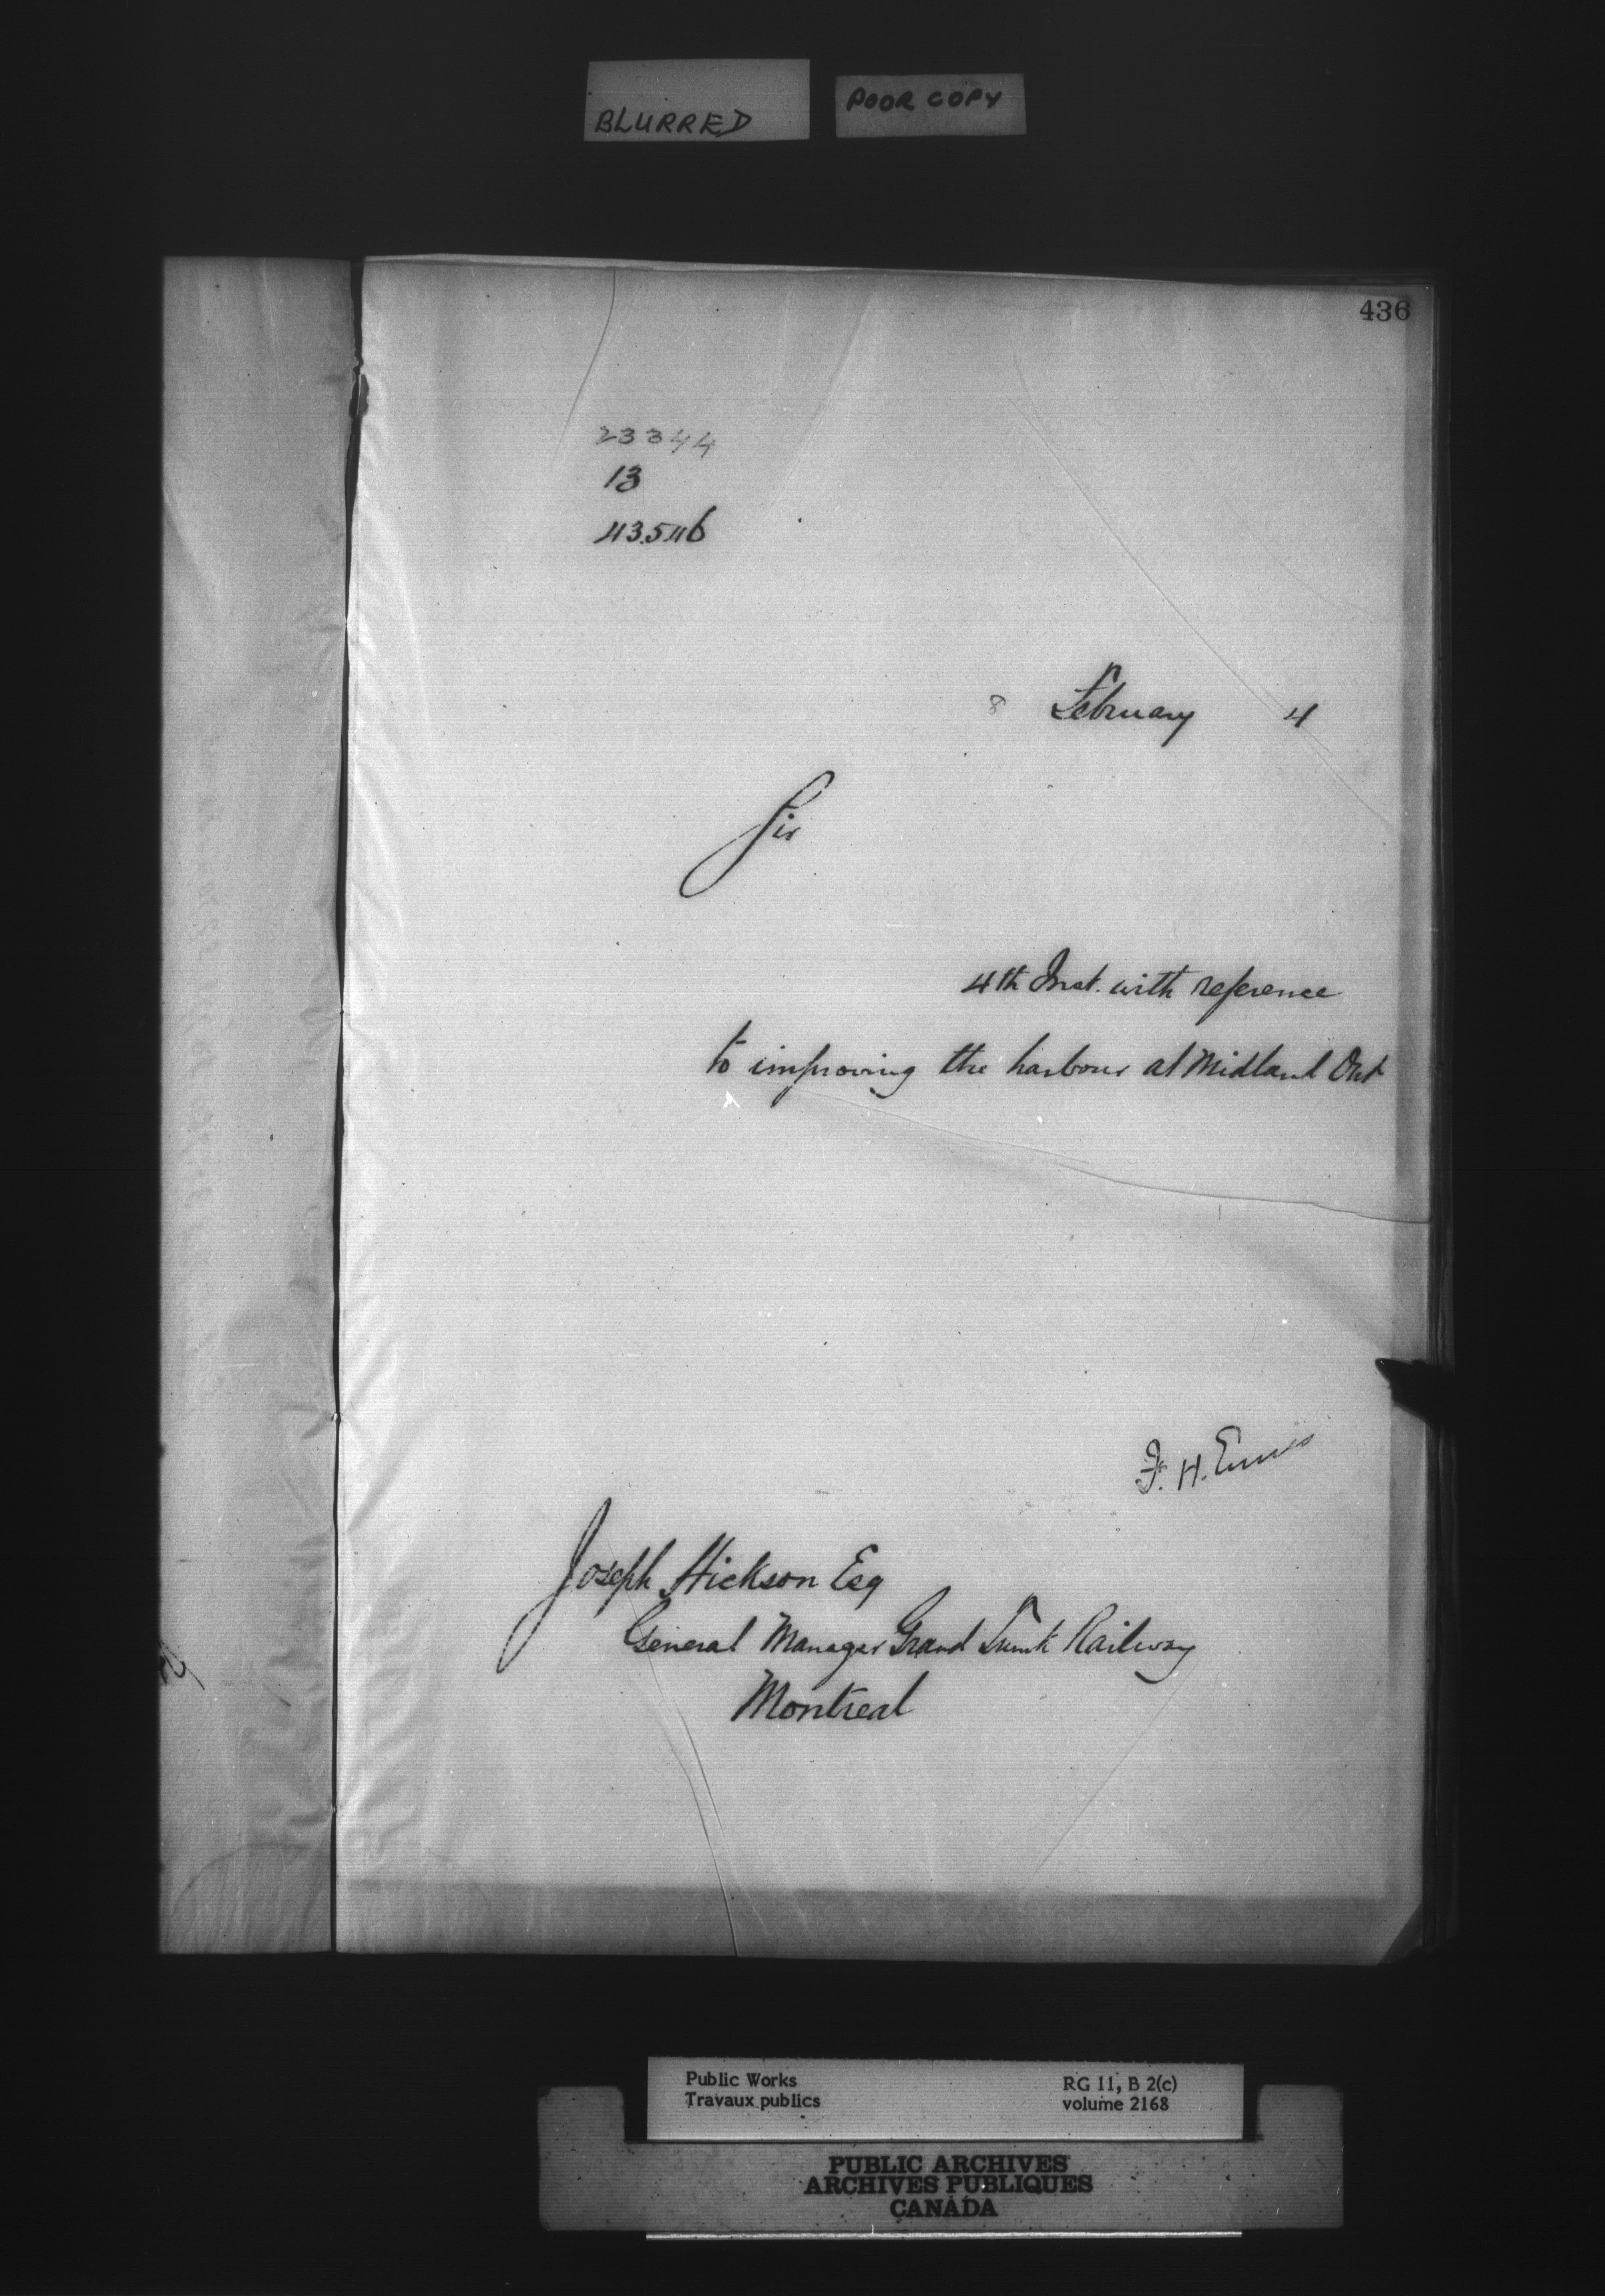 BLURRED
POOR COPY
436
23344
13
43546
8 February 4
Sir
4th Inst. with reference
to improving the harbour at Midland Ont
F. H. Ennis
Joseph Hickson Esq
General Manager Grand Trunk Railway
Montreal
Public Works
Travaux publics
RG 11, B 2(c)
volume 2168
PUBLIC ARCHIVES
ARCHIVES PUBLIQUES
CANADA